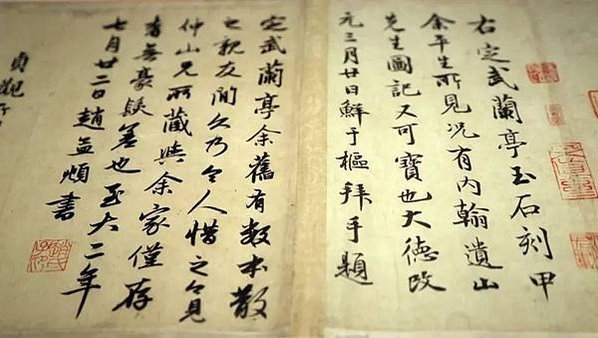 右定武蘭亭玉石刻甲
余平生所見況有內翰遺山
先生圖記又可寶也大德改
元三月廿日鮮于樞拜手題
定武蘭亭余舊有数本散
之親友間久乃令人惜之今見
仲山兄所藏與余家僅存
者無豪髮差也至大二年
七月廿二日趙孟頫書
貞觀